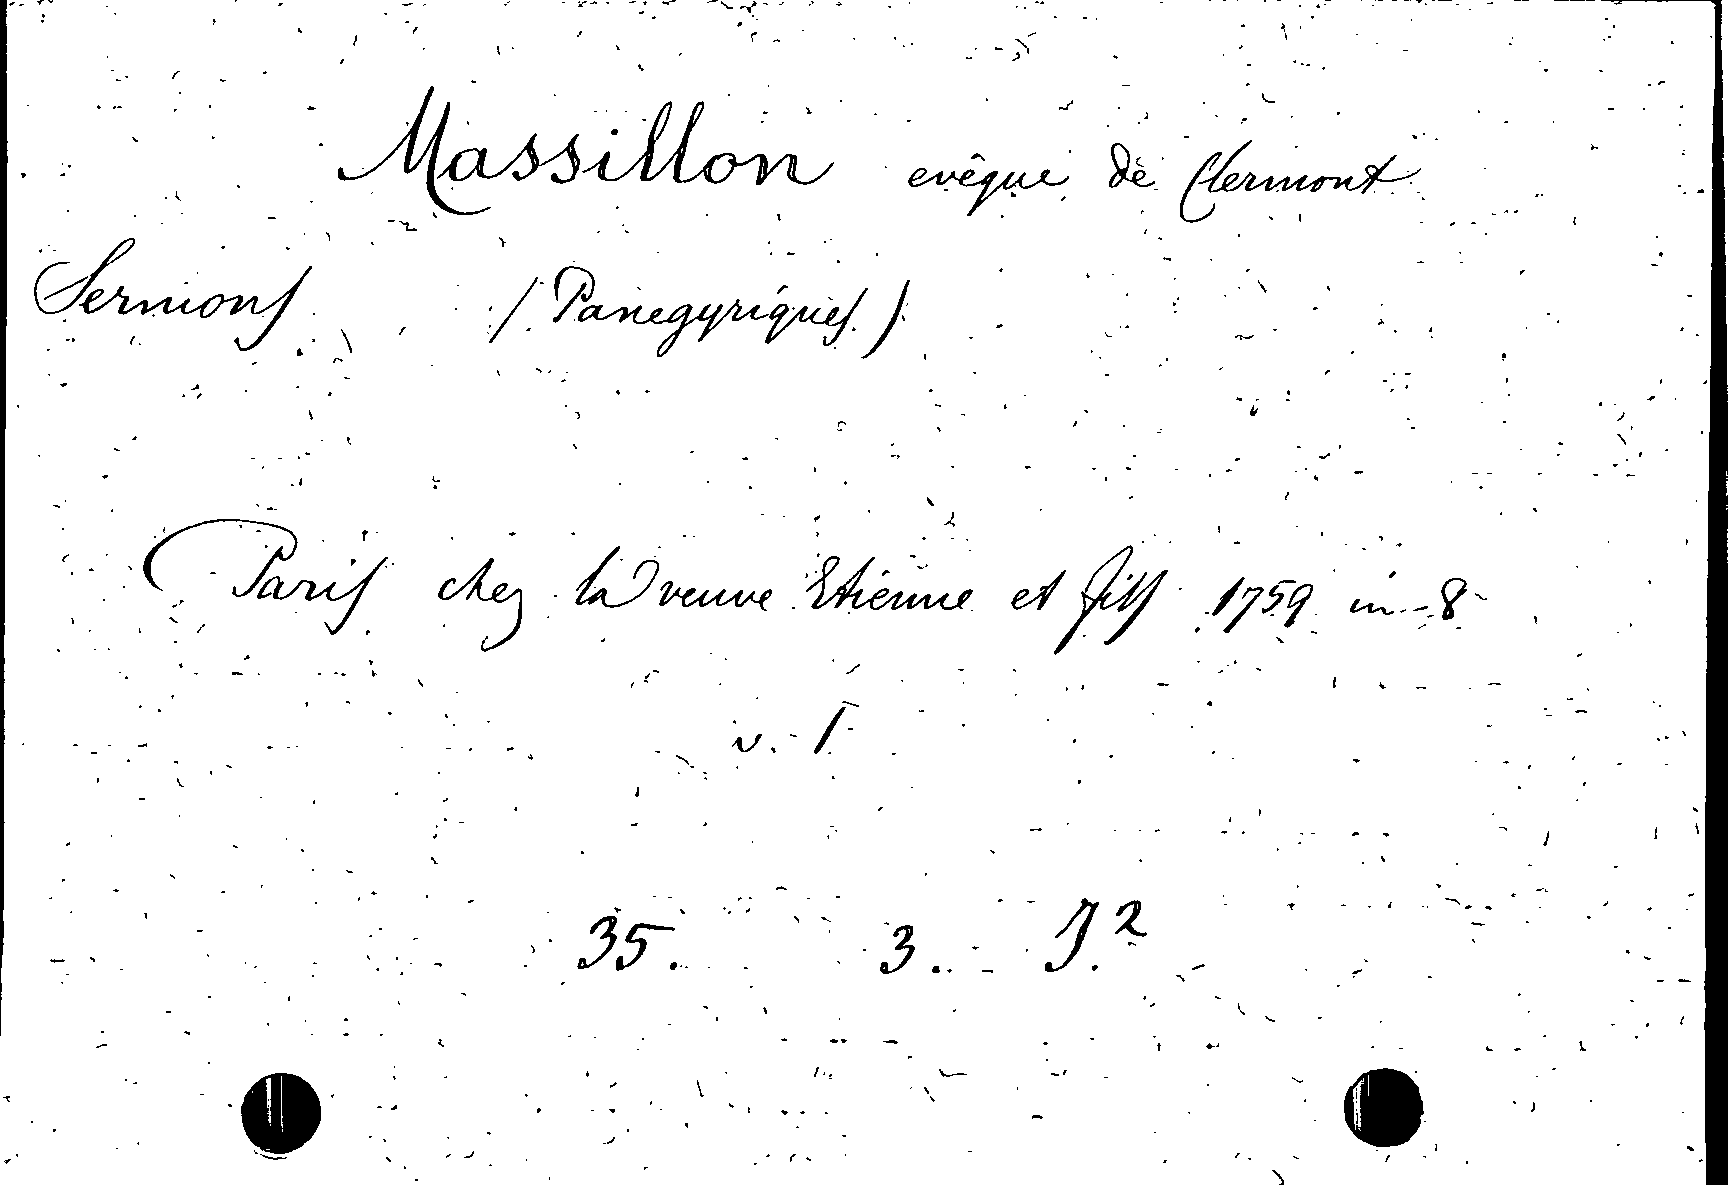 Massillon evêque de Clermont
Sermons (Panegyriques)
Paris chez la veuve Etienne et fils 1759 in-8
v. 1
35. 3. J.²